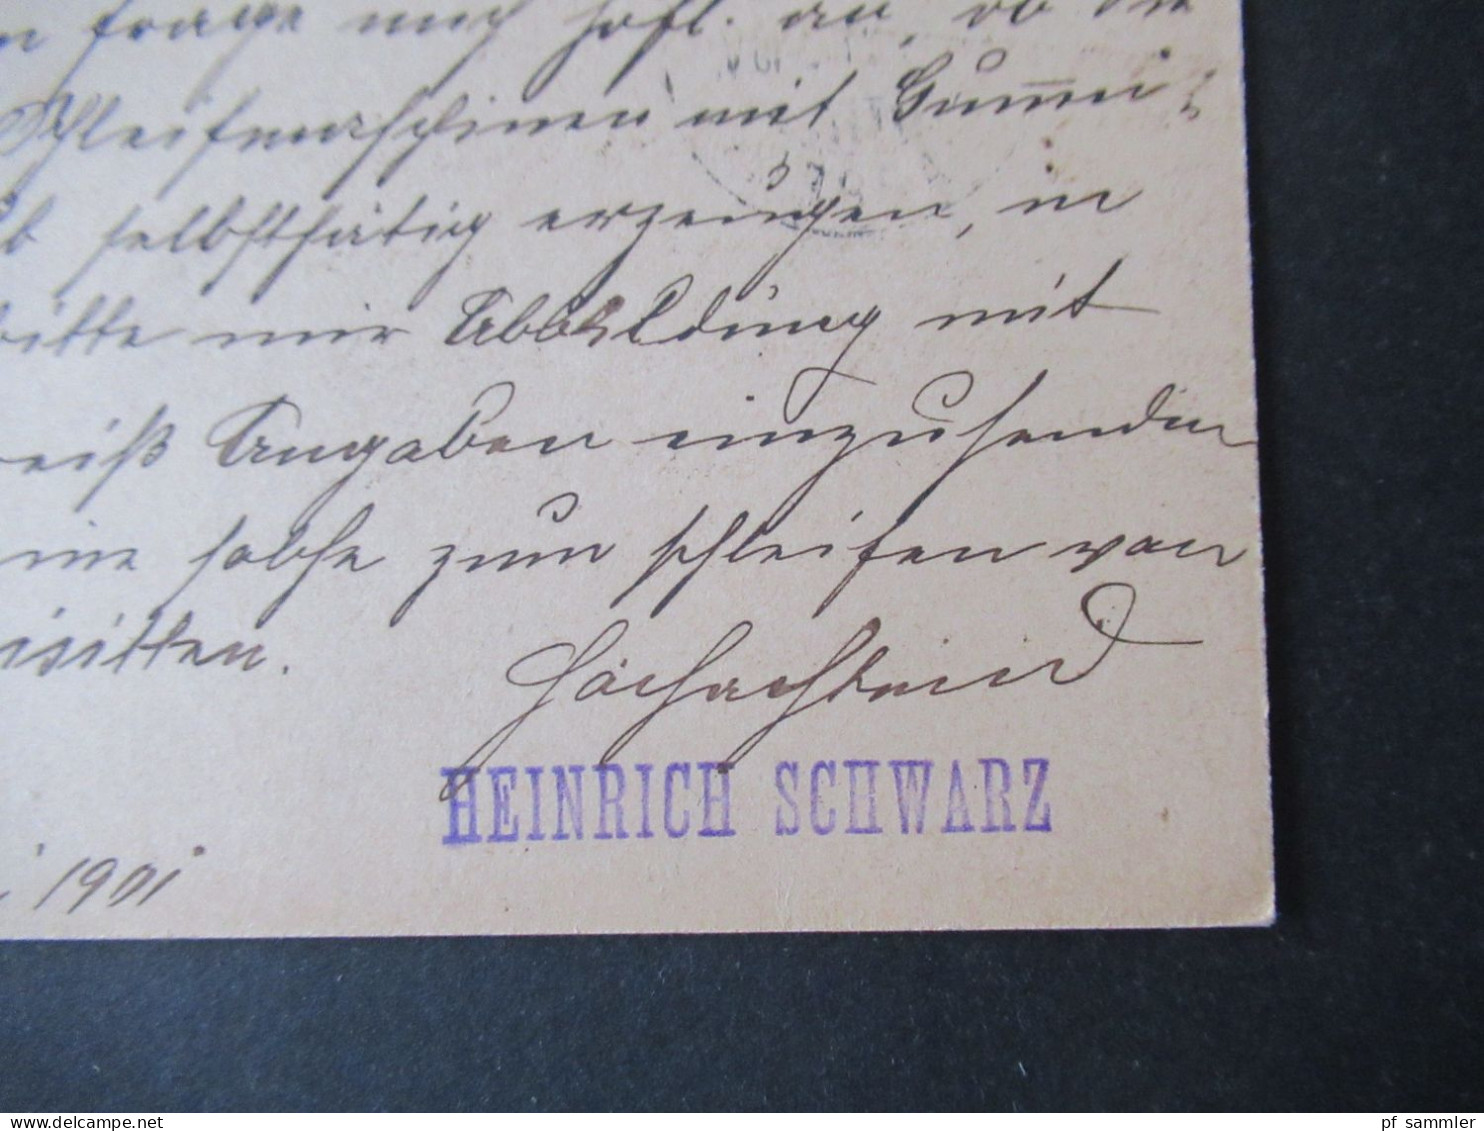 frage mich höfl. an, ob Sie
Schleifmaschinen mit Gummi-
selbstthätig erzeugen, in
bitte mir Abbildung mit
Preiß Angaben einzusenden
solche zum schleifen von
Hochachtend
HEINRICH SCHWARZ
1901
pf_sammler delcampe.net